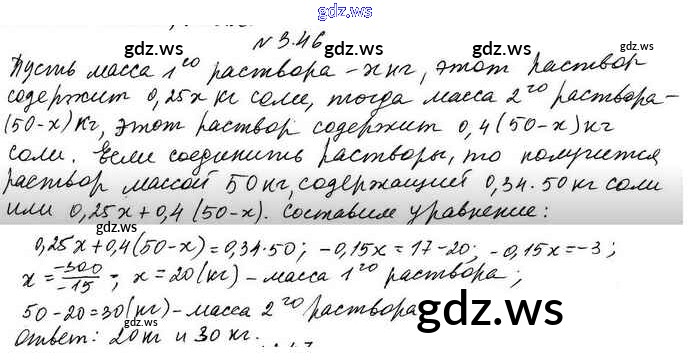 gdz.ws
№ 3.46
Пусть масса 1го раствора – x кг, этот раствор
gdz.ws gdz.ws
содержит 0,25x кг соли, тогда масса 2го раствора –
(50-x) кг, этот раствор содержит 0,4(50-x) кг
gdz.ws gdz.ws
соли. Если соединить растворы, то получится
раствор массой 50 кг, содержащий 0,34·50 кг соли
или 0,25x+0,4(50-x). Составим уравнение:
gdz.ws gdz.ws
0,25x+0,4(50-x)=0,34·50; -0,15x=17-20; -0,15x=-3;
x=-300/-15; x=20(кг) – масса 1го раствора;
50-20=30(кг) – масса 2го раствора
gdz.ws gdz.ws
Ответ: 20 кг и 30 кг.
gdz.ws